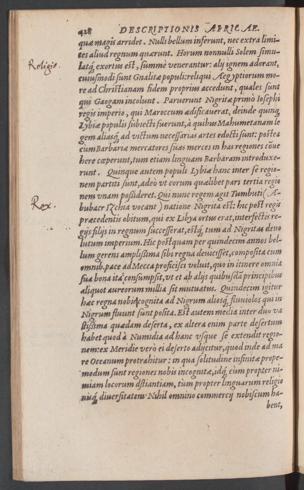 428 DESCRIPTIONIS AFRICAE
quæ magis arridet. Nulli bellum inferunt, nec extra limi-
tes aliud regnum quærunt. Horum nonnulli Solem simu-
latq; exortus est, summè venerantur: alij ignem adorant,
Religio.
cuiusmodi sunt Gualatæ populi: reliqui Aegyptiorum mo-
re ad Christianam fidem proprius accedunt, quales sunt
qui Gaogam incolunt. Paruerunt Nigritæ primò Iosepho
regis imperio, qui Maroccum ædificauerat, deinde quinq;
Lybiæ populis subiecti fuerunt, à quibus Mahumetanam le
gem aliasq; ad victum necessarias artes edocti sunt: postea
cum Barbariæ mercatores suas merces in has regiones cœpe
here cœperunt, tum etiam linguam Barbaram introduxe-
runt. Quinque autem populi Lybiæ hanc inter se regio-
nem partiti sunt, adeò vt eorum quælibet pars tertia regio
nem vnam possideret. Qui nunc regem agit Tumbuti (A-
Rex.
bubacr Izchia vocant) natione Nigrita est: hic post regis
præcedentis obitum, qui ex Libya ortus erat, interfectis re-
gijs filijs in regnum successerat, estq; tum ad Nigritas deuo
lutum imperium. Hic postquam per quindecim annos bel-
lum gerens amplissima sibi regna deuicisset, composita cum
omnib. pace ad Mecca proficisci voluit, quo in itinere omnia
sua bona ità consumpsit, vt et ab alijs quibusdã principibus
aliquot aureorum millia sit mutuatus. Quindecim igitur
hæc regna nobis cognita ad Nigrum aliosq; fluuiolos qui in
Nigrum fluunt sunt posita. Est autem media inter duo va
stissima quædam deserta, ex altera enim parte desertum
habet quod à Numidia ad hanc vsque se extendit regio-
nem: ex Meridie verò ei deserto adijcitur, quod inde ad ma
re Oceanum protrahitur: in qua solitudine infinitæ prope-
modum sunt regiones nobis incognitæ, idq; cùm propter ni-
miam locorum distantiam, tùm propter linguarum religio
nisq; diuersitatem Nihil omnino commercij nobiscum ha-
bent,